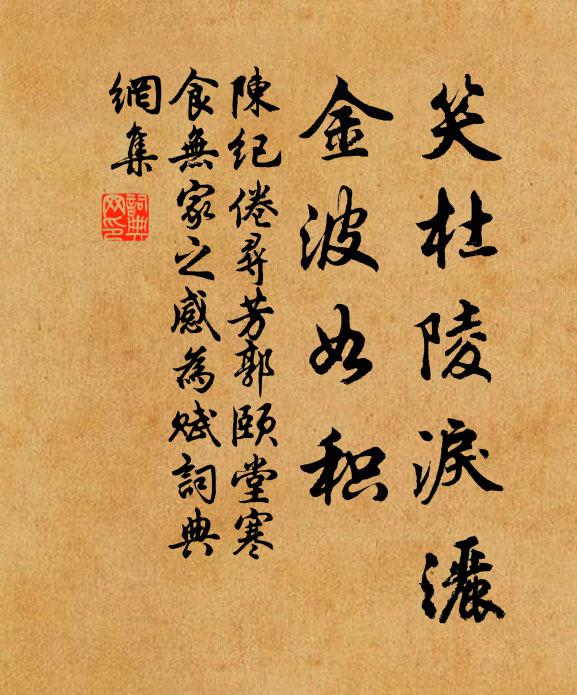 笑杜陵淚灑
金波如积
陳紀倦尋芳郭頤堂寒
食無家之感為賦詞典
網集
詞典网印